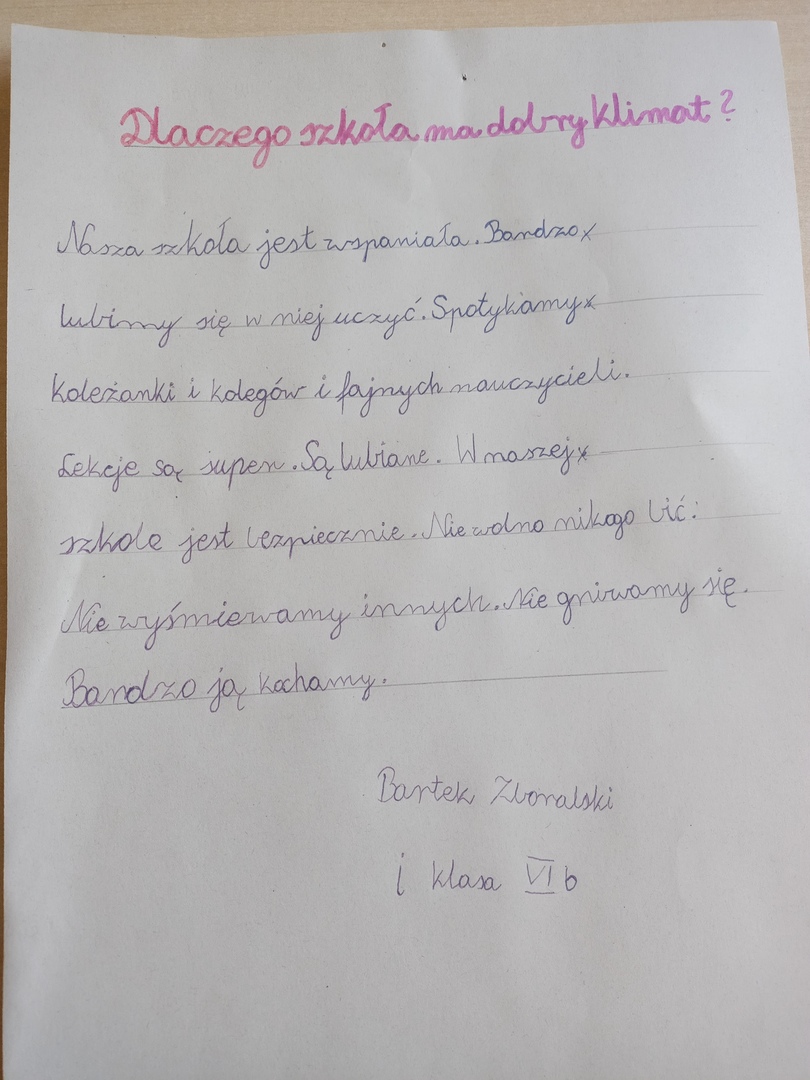 Dlaczego szkoła ma dobry klimat?
Nasza szkoła jest wspaniała. Bardzo x
lubimy się w niej uczyć. Spotykamy x
koleżanki i kolegów i fajnych nauczycieli.
Lekcje są super. Są lubiane. W naszej x
szkole jest bezpiecznie. Nie wolno nikogo bić.
Nie wyśmiewamy innych. Nie gniwamy się.
Bardzo ją kochamy.
Bartek Zboralski
i klasa VI b